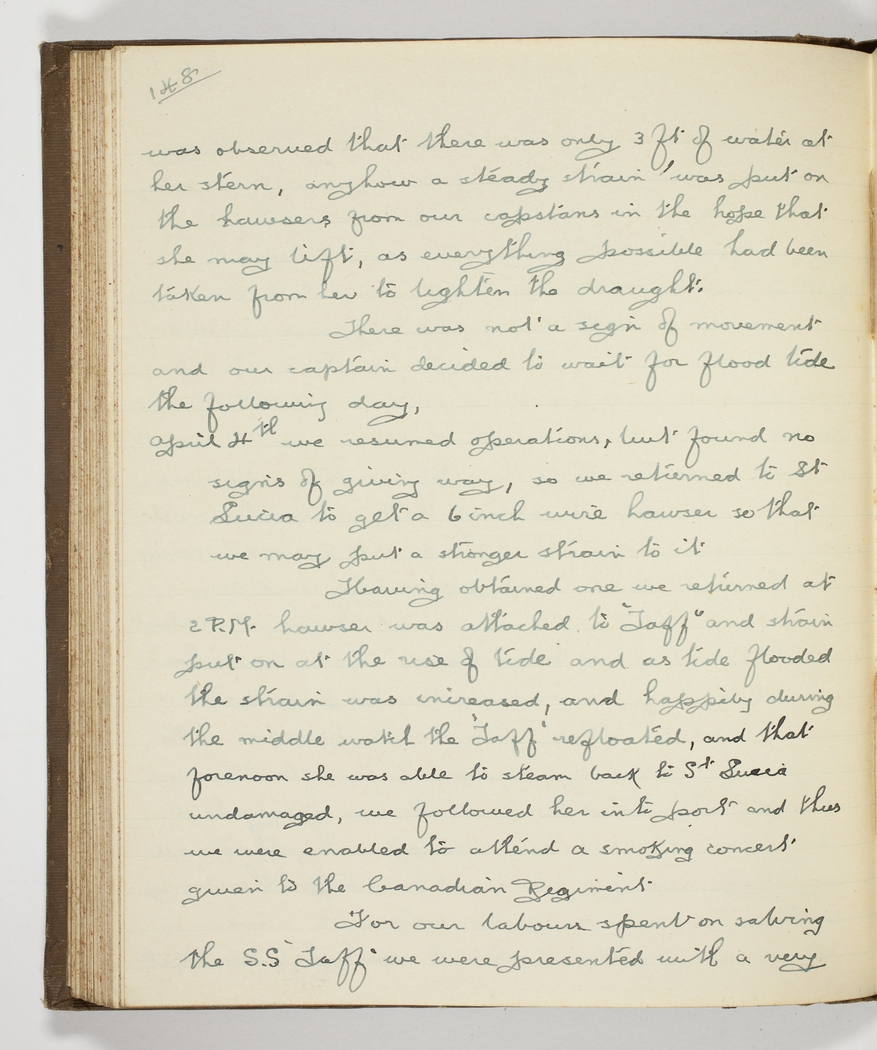 148
was observed that there was only 3 ft of water at
her stern, anyhow a steady strain was put on
the hawsers from our capstans in the hope that
she may lift, as everything possible had been
taken from her to lighten the draught.
There was not a sign of movement
and our captain decided to wait for flood tide
the following day,
April 4th we resumed operations, but found no
signs of giving way, so we returned to St
Lucia to get a 6 inch wire hawser so that
we may put a stronger strain to it
Having obtained one we returned at
2 P.M. hawser was attached to "Taff" and strain
put on at the rise of tide and as tide flooded
the strain was increased, and happily during
the middle watch the "Taff" refloated, and that
forenoon she was able to steam back to St Lucia
undamaged, we followed her into port and thus
we were enabled to attend a smoking concert
given to the Canadian Regiment
For our labours spent on salving
the S.S "Taff" we were presented with a very